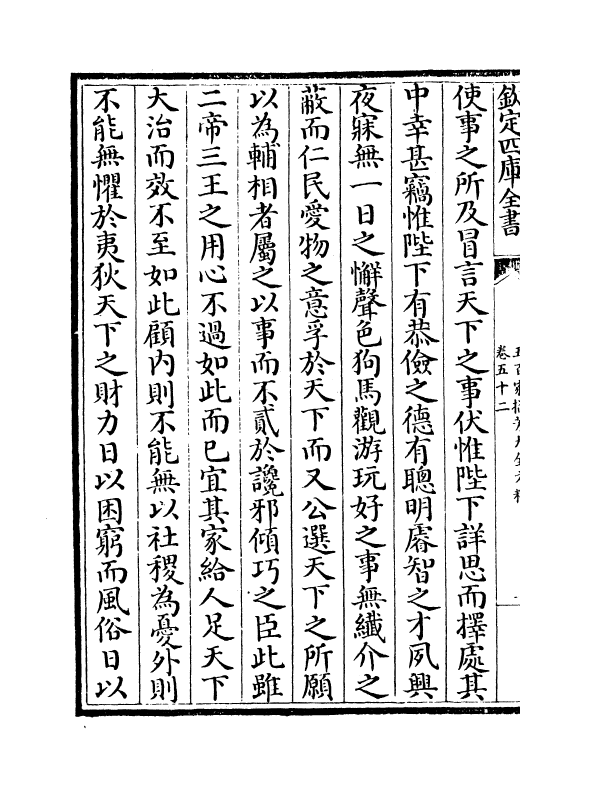 欽定四庫全書
卷五十二
使事之所及冒言天下之事伏惟陛下詳思而擇處其
中幸甚竊惟陛下有恭儉之德有聰明睿智之才夙興
夜寐無一日之懈聲色狗馬觀游玩好之事無纖介之
蔽而仁民愛物之意孚於天下而又公選天下之所願
以為輔相者屬之以事而不貳於讒邪傾巧之臣此雖
二帝三王之用心不過如此而已宜其家給人足天下
大治而效不至如此顧内則不能無以社稷為憂外則
不能無懼於夷狄天下之財力日以困窮而風俗日以